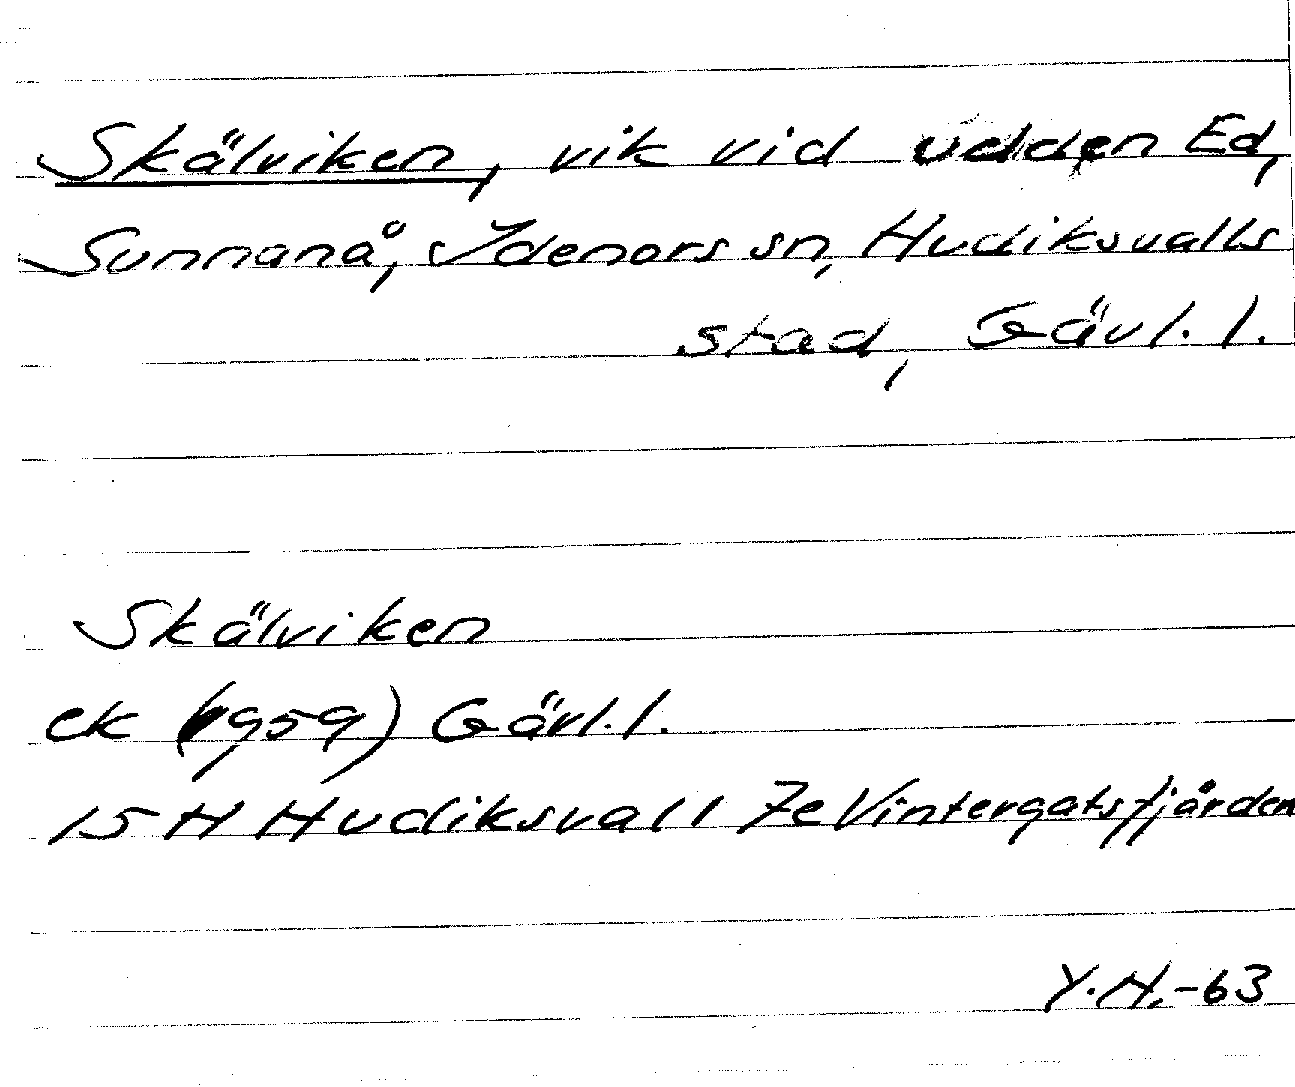 Skälviken, vik vid udden Ed,
Sunnanå, Idenors sn, Hudiksvalls
stad, Gävl. l.
Skälviken
ek (1959) Gävl. l.
15 H Hudiksvall 7e Vintergatsfjärden
Y.H.-63